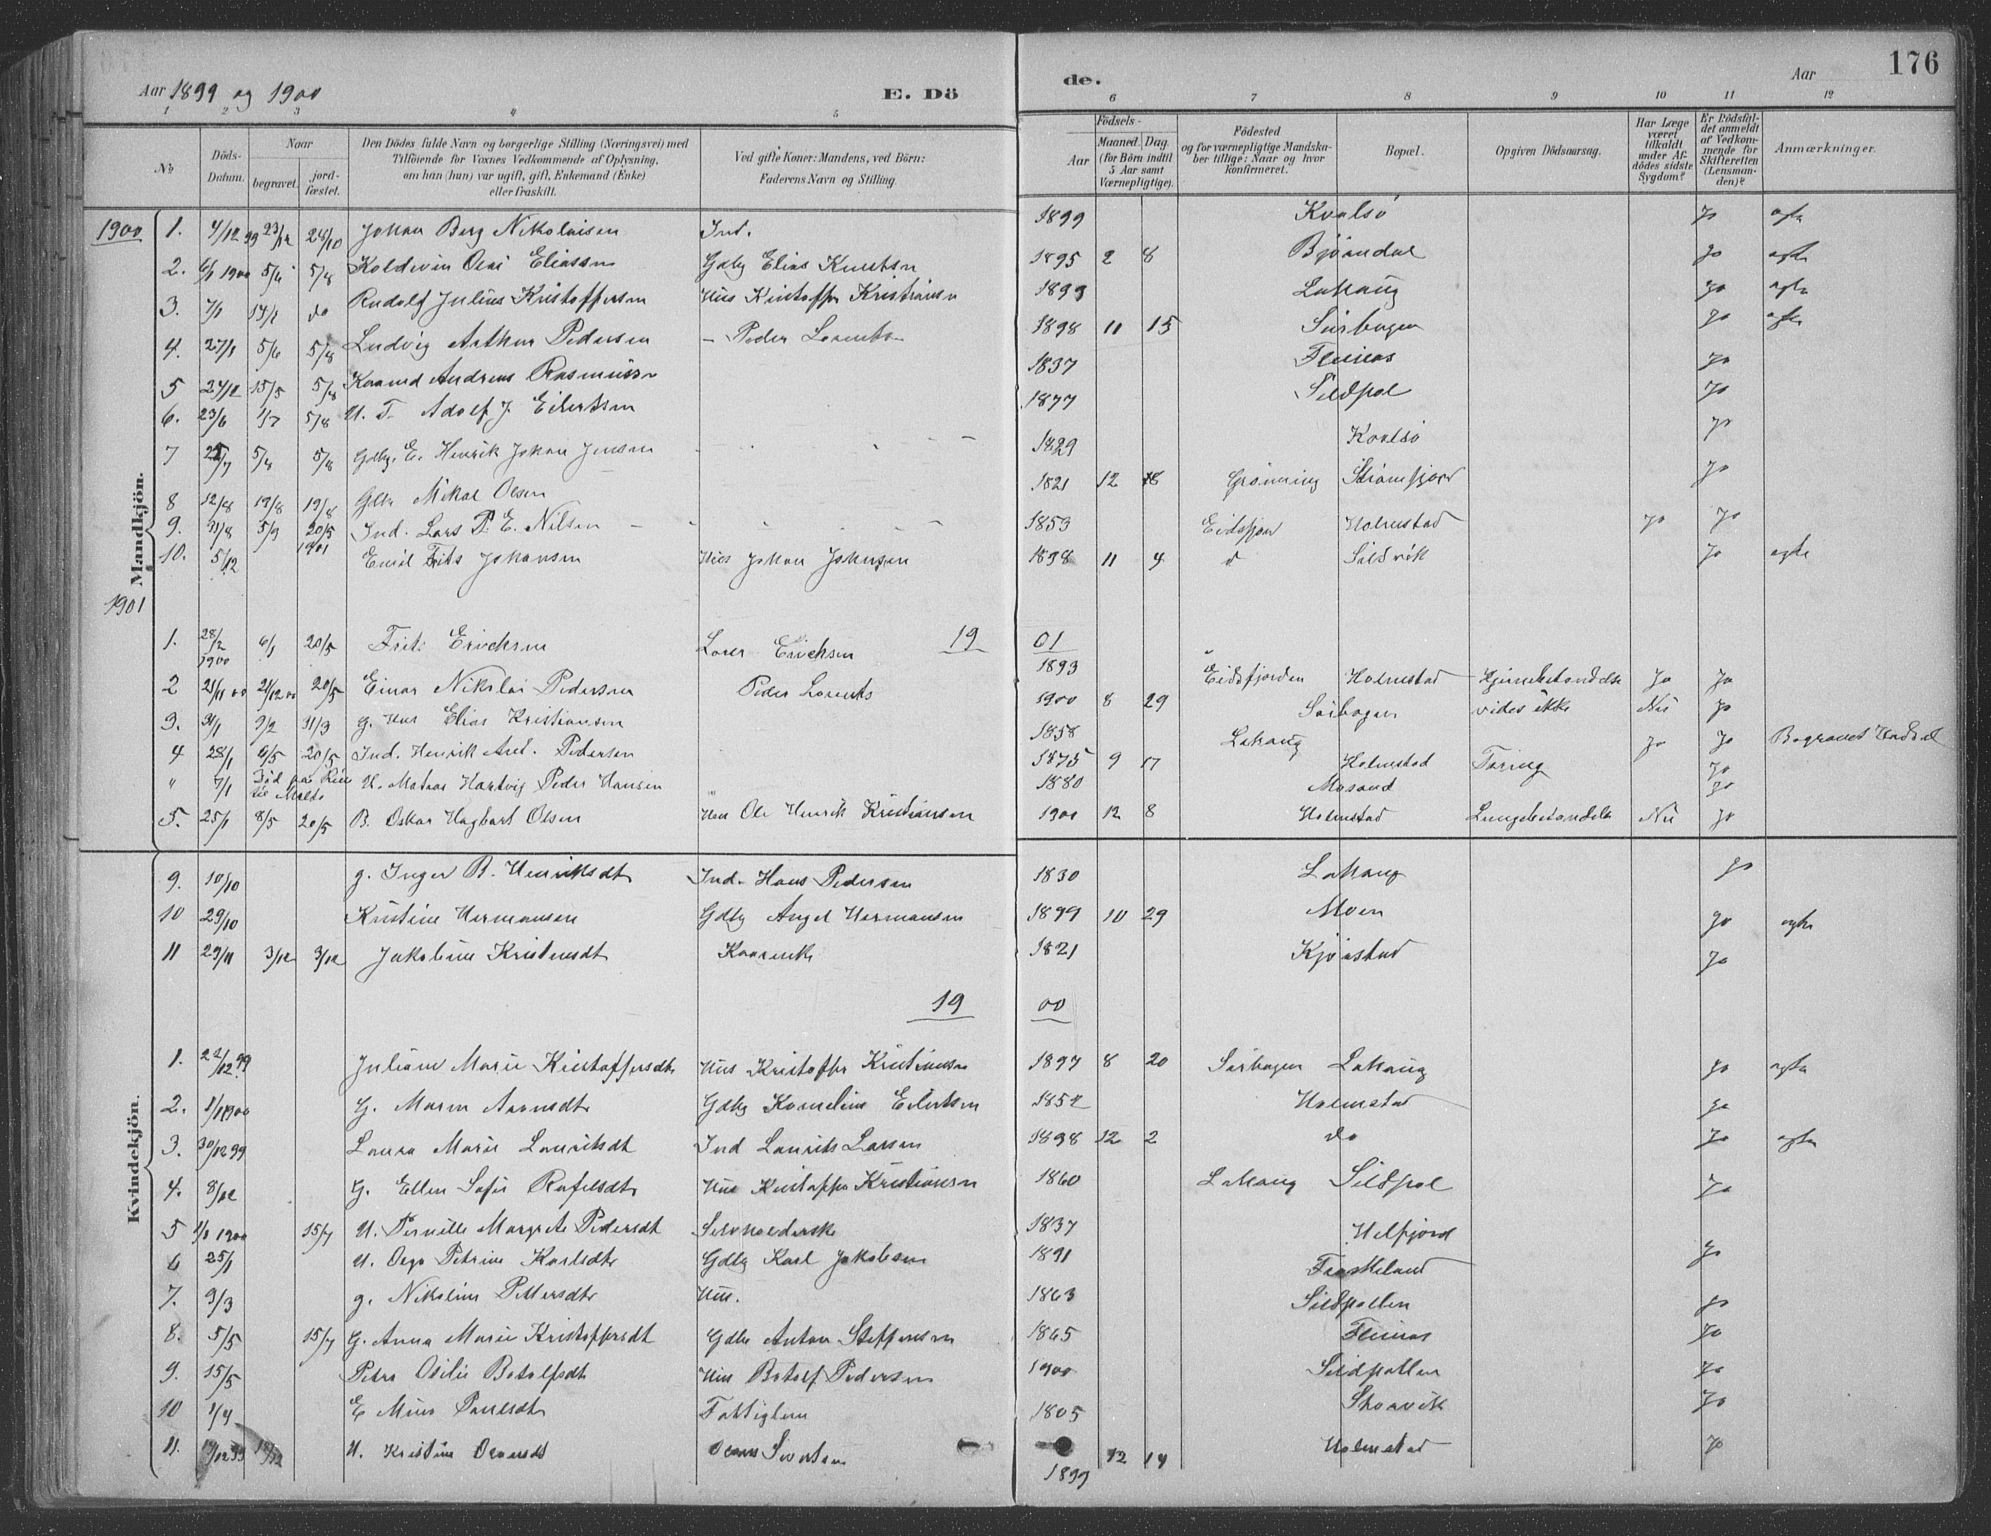 176
Aar 1899 og 1900 E. Dö de. Aar
1 2 3 4 5 6 7 8 9 10 11 12
No Döds-Datum. Naar begravet. jord-fæstet. Den Dödes fulde Navn og borgerlige Stilling (Næringsvei) med Tilföiende for Voxnes Vedkommende af Oplysning, om han (hun) var ugift, gift, Enkemand (Enke) eller fraskilt. Ved gifte Koner: Mandens, ved Börn: Faderens Navn og Stilling. Födsels- Aar Maaned. Dag. (for Börn indtil 5 Aar samt Værnepligtige). Födested og for værnepligtige Mandskaber tillige: Naar og hvor konfirmeret. Bopæl. Opgiven Dödsaarsag. Har Læge været tilkaldt under Afdödes sidste Sygdom? Er Dödsfaldet anmeldt af Vedkommende for Skifteretten (Lensmanden)? Anmærkninger.
Mandkjön.
1900 1. 4/12 99 23/12 28/10 Johan Berg Nikolaisen Ind. 1899 Kvalsö Jo agte
2. 6/1 1900 5/6 5/8 Koldevin Olai Eliassen Gdbr Elias Knutsen 1895 2 8 Bjørndal Jo agte
3. 7/1 14/1 do Rudolf Julius Kristoffersen Hus Kristoffer Kristiansen 1899 Lahaug Jo agte
4. 27/1 5/6 5/8 Ludvig Arthur Pedersen - Peder Lorents 1898 11 15 Sørbogen Jo agte
5 24/12 15/5 5/8 Andreas Rasmussen 1837 Flesnes Jo
6. 23/6 1/7 5/8 U. T. Adolf J. Eilertsen 1877 Sildpol Jo
7 5/8 5/8 Gdbr. E. Henrik Johan Jensen 1829 Kvalsö Jo
8 12/8 19/8 19/8 Gdbr Mikal Olsen 1821 12 18 Grønning Strømfjord Jo
9. 31/8 5/9 20/5 1901 Ind. Lars P. E. Nilsen 1853 Eidsfjord Holmstad Jo Jo
10. 5/12 Emil Frits Johansen Hus Johan Johnsen 1898 11 4 d Sildvik Jo agte
1901 19 01
1. 28/2 1900 6/1 20/5 Frits Ericksen Ericksen 1893 Eidsfjorden Holmstad Hjernebetændelse Jo Jo
2 21/11 00 21/12 00 20/5 Einar Nikolai Pedersen Peder Lorents 1900 8 29 Sørbogen vides ikke Nei Jo
3. 31/1 9/2 11/3 g. Hus Elias Kristiansen 1858 Lahaug Jo Jo Begravet Hadsel
4 28/1 6/5 20/5 Ind. Henrik Pedersen 1875 9 17 Holmstad Tæring Jo
" 7/1 Død paa til U. Hartvig Peder Hansen 1880 Masund Jo
5. 25/1 8/5 20/5 B. Oskar Hagbart Olsen Hus Ole Henrik Kristiansen 1900 12 8 Holmstad Lungebetændelse Nei Jo
Kvindekjön.
9. 10/10 g. Inger B. Henriksdt Ind. Hans Pedersen 1830 Lahaug Jo
10 29/10 Kristine Hermansen Gdbr Angel Hermansen 1899 10 29 Moen Jo agte
11 29/11 3/12 3/12 Jakobine Kristensdt 1821 Kjørstad Jo
19 00
1. 22/12 99 Juliane Marie Kristoffersdt Hus Kristoffer Kristiansen 1897 8 20 Sørbogen Lahaug Jo agte
2. 1/1 1900 G. Maren Aronsdt Gdbr Kornelius Eilertsen 1852 Holmstad Jo
3. 30/12 99 Laura Marie Lauritsdt Ind Laurits Larsen 1898 12 2 do Jo agte
4. 8/12 G. Ellen Sofie Rafelsdt Hus Kristoffer Kristiansen 1860 Lahaug Sildpol Jo
5 1/1 1900 15/7 U. Pernille Margrete Pedersdt 1837 Helfjord
6 25/1 U. Olga Petrine Karlsdt Gdbr Karl Jakobsen 1891 Frøskeland Jo
7. 9/3 g. Nikoline Pettersdt Hus. 1863 Sildpollen Jo
8. 5/5 15/7 G. Anna Marie Kristoffersdt Gdbr Anton Steffensen 1865 Flesnes Jo
9. 15/5 Petra Otilie Botolfsdt Hus Botolf Pedersen 1900 Sildpollen Jo
10 1/4 E Paulsdt Fattiglem 1805 Skarvik Jo
11. U. Kristine Sivertsen 1899 12 14 Holmstad Jo